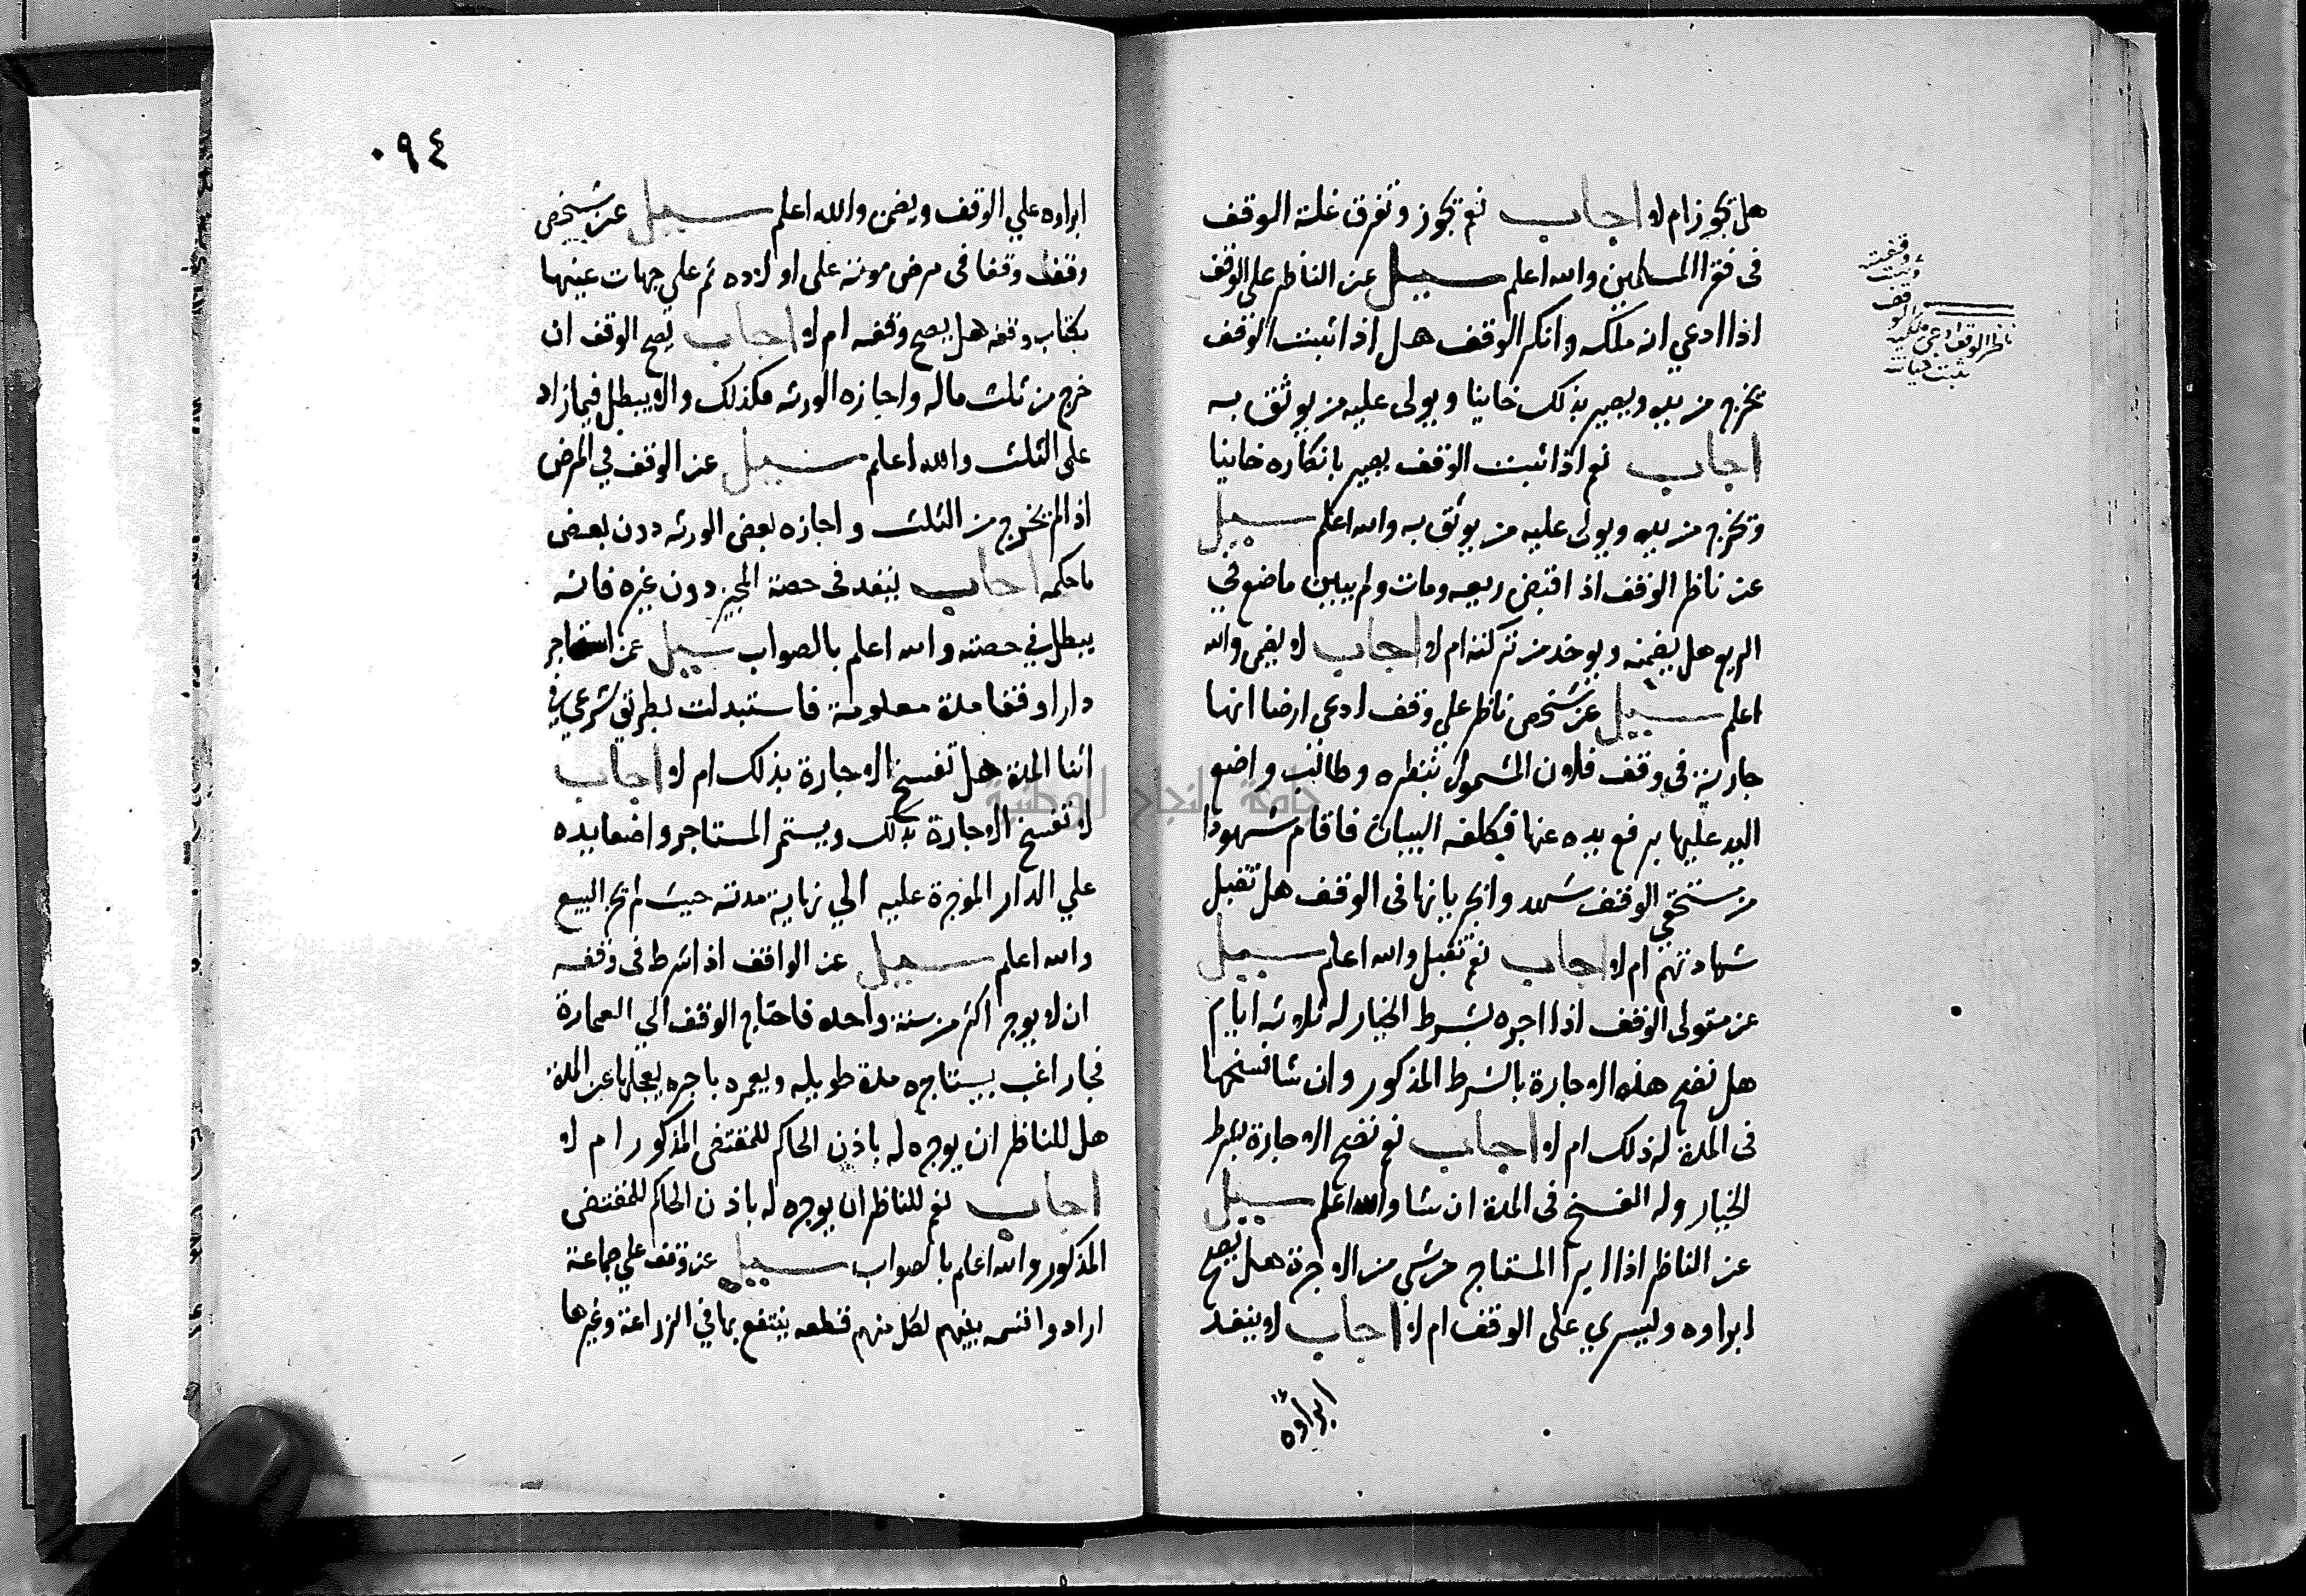 هل تجوز ام لا اجاب نعم تجوز وتفرق غلة الوقف
فى فقرا المسلمين والله اعلم سيل عن الناظر على الوقف
اذا ادعي انه ملكه وانكر الوقف هل اذا ثبت الوقف
يخرج من يده ويصير بذلك خاينا ويولى عليه من يوثق به
اجاب نعم اذا ثبت الوقف يصير بانكاره خاينا
وتخرج من يده ويولى عليه من يوثق به والله اعلم سيل
عن ناظر الوقف اذا قبض ريعه ومات ولم يبين ما ضع في
الريع هل يضمنه ويوخذ من تركته ام لا اجاب لا يضمن والله
اعلم سيل عن شخص ناظر علي وقف ادعى ارضا انها
جارية فى وقف فلان المشمول بنظره وطالب واضع
اليد عليها برفع يده عنها فكلفه البيان فاقام شهودا
من مستحقي الوقف شهد وانجر بانها فى الوقف هل تقبل
شهادتهم ام لا اجاب نعم تقبل والله اعلم سيل
عن متولى الوقف اذا اجره بشرط الخيار له ثلاثة ايام
هل تصح هذه الاجارة بالشرط المذكور وان شا فسخها
فى المدة له ذلك ام لا اجاب نعم تصح الاجارة بشرط
الخيار وله الفسخ فى المدة ان شا والله اعلم سيل
عن الناظر اذا ابرا المستاجر من شي من الاجرة هل يصح
ابراوه وليسري على الوقف ام لا اجاب لا ينفد
ابراوه
ناظر الوقف ادعى ملكية
الوقف
وثبت
وقفيته
ثبت خيانته
٠٩٤
ابراوه علي الوقف ويضمن والله اعلم سيل عن شخص
وقف وقفا فى مرض موته على اولاده ثم علي جهات عينها
بكتاب وقفه هل يصح وقفه ام لا اجاب يصح الوقف ان
خرج من ثلث ماله واجازه الورثه فكذلك والا يبطل فيما زاد
على الثلث والله اعلم سيل عن الوقف في المرض
اذا لم يخرج من الثلث واجازه بعض الورثه دون بعض
ما حكمه اجاب ينفد فى حصة المجيز دون غيره فانه
يبطل في حصته والله اعلم بالصواب سيل عن استاجر
دارا وقفا مدة معلومة فاستبدلت بطريق شرعي في
اثنا المدة هل تفسخ الاجارة بذلك ام لا اجاب
لا تفسخ الاجارة بذلك ويستمر المستاجر واضعا يده
علي الدار الموجرة عليه الي نهاية مدته حيث لم يجز البيع
والله اعلم سيل عن الواقف اذا شرط فى وقفه
ان لا يوجر اكثر من سنة واحده فاحتاج الوقف الي العمارة
فجا راغب يستاجره مدة طويله ويعمره باجره يعجلها عن المدة
هل للناظر ان يوجره له باذن الحاكم للمقتضى المذكور ام لا
اجاب نعم للناظر ان يوجره له باذن الحاكم للمقتضى
المذكور والله اعلم بالصواب سيل عن وقف علي جماعة
ارادوا قسمه بينهم لكل منهم قطعه ينتفع بها في الزراعة وغيرها
جامعة النجاح الوطنية